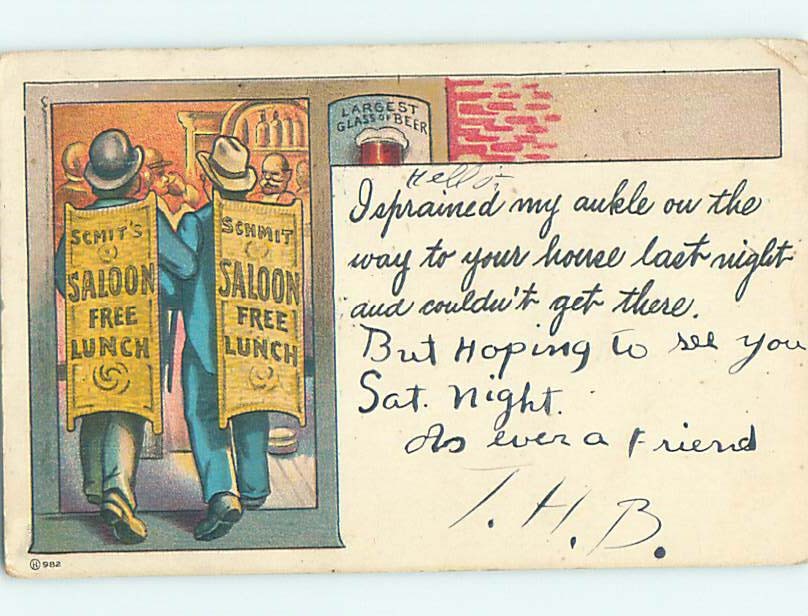 LARGEST
GLASS OF BEER
SCMIT'S
SALOON
FREE
LUNCH
SCHMIT
SALOON
FREE
LUNCH
Hello
I sprained my ankle on the
way to your house last night
and couldn't get there.
But Hoping to see you
Sat. Night.
As ever a Friend
T. H. B.
H 982